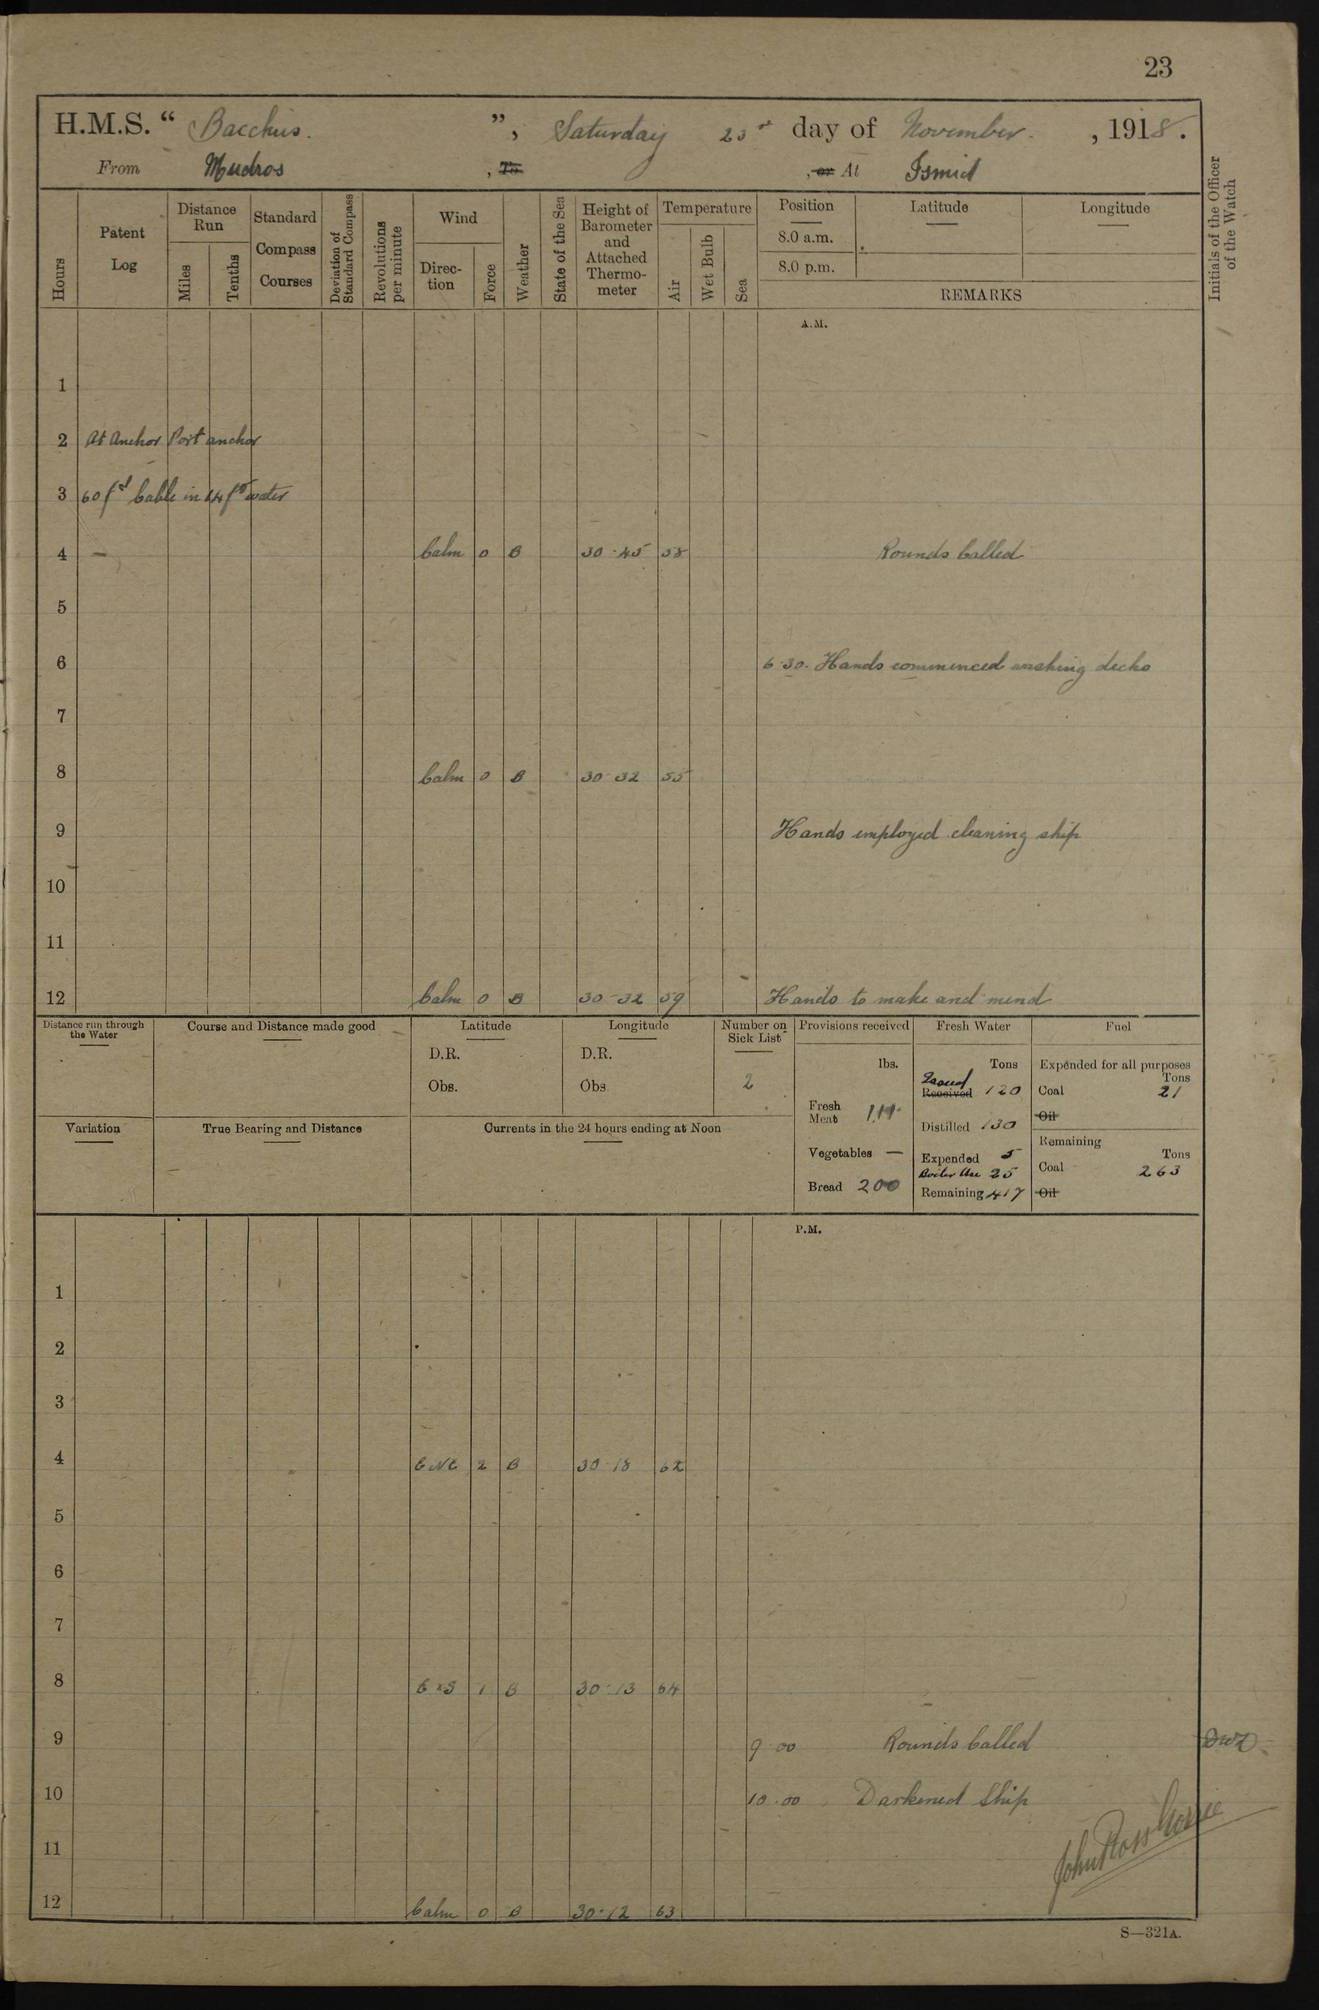 23
H.M.S. “ Bacchus. ”, Saturday 23rd day of November. , 1918.
From Mudros , To , or At Ismid
Hours
Patent Log
Distance Run
Miles
Tenths
Standard Compass Courses
Deviation of Standard Compass
Revolutions per minute
Wind
Direc-tion
Force
Weather
State of the Sea
Height of Barometer and Attached Thermo-meter
Temperature
Air
Wet Bulb
Sea
Position
8.0 a.m.
8.0 p.m.
Latitude
Longitude
REMARKS
Initials of the Officer of the Watch
A.M.
1
2 At Anchor Port anchor
3 60 fd Cable in 14 fms water
4 — Calm 0 B 30.45 58 Rounds Called
5
6 6.30. Hands commenced washing decks
7
8 Calm 0 B 30.32 55
9 Hands employed cleaning ship
10
11
12 Calm 0 B 30.32 59 Hands to make and mend
Distance run through the Water
Course and Distance made good
Latitude
D.R.
Obs.
Longitude
D.R.
Obs
Number on Sick List
2
Provisions received
lbs.
Fresh Meat 111
Vegetables —
Bread 200
Fresh Water
Tons
Issued
Received 120
Distilled 130
Expended 5
Boiler Use 25
Remaining 417
Fuel
Expended for all purposes
Tons
Coal 21
Oil
Remaining
Tons
Coal 263
Oil
Variation
True Bearing and Distance
Currents in the 24 hours ending at Noon
P.M.
1
2
3
4 ENE 2 B 30.18 62
5
6
7
8 E x S 1 B 30.13 64
9 9.00 Rounds Called
10 10.00 Darkened Ship
11 John Ross
12 Calm 0 B 30.12 63
S—321A.